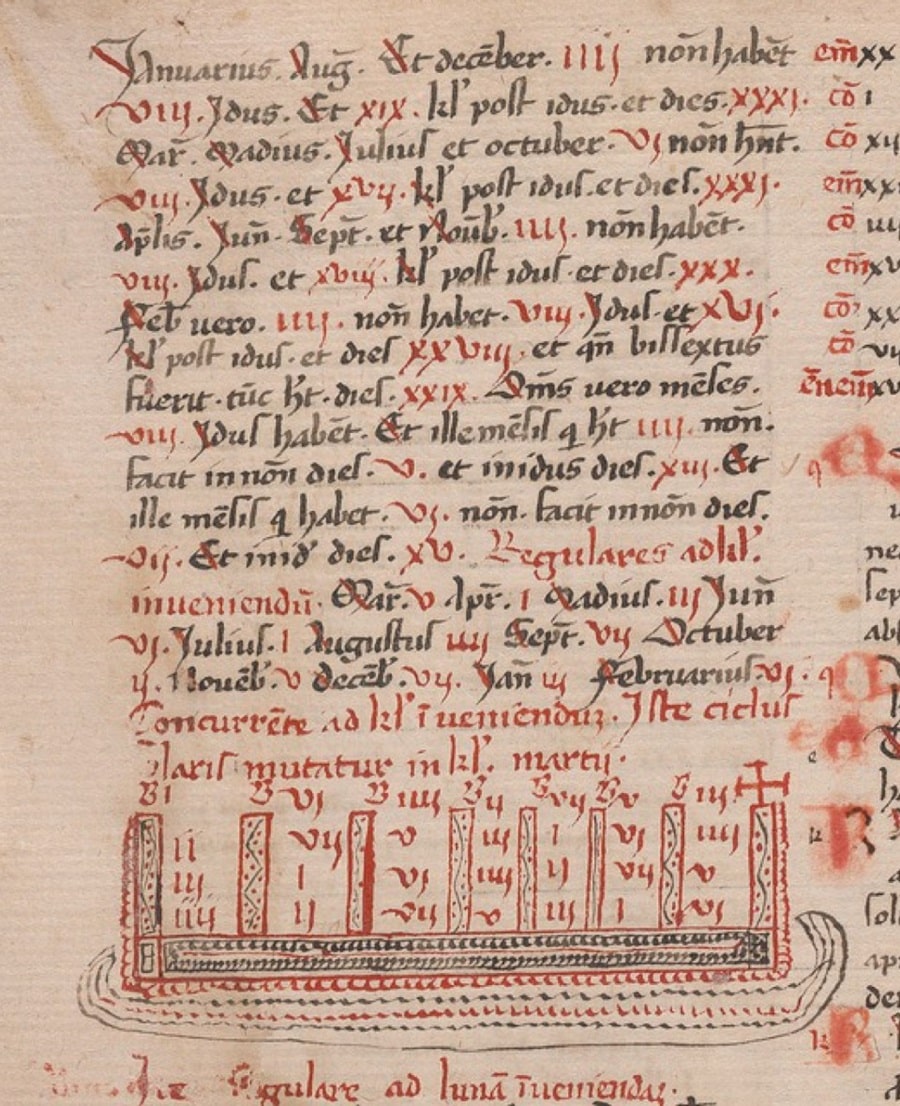 Januarius. Aug̅. Et decēber. IIIJ nōn habēt
VIIJ. Jdus. Et XIX. kl' post idus. et dies. XXXJ.
Mar̅. Madius. Julius et octuber. VJ nōn hn̅t.
VIIJ. Jdus. et XVIJ. kl' post idus. et dies. XXXJ.
Ap̅lis. Jun̅. Sept̅. et Nou̅b'. IIIJ. nōn habēt.
VIIJ. Jdus. et XVIIJ. kl' post idus. et dies. XXX.
Feb̅ uero. IIIJ. nōn habet. VIIJ. Jdus. et XVJ.
kl' post idus. et dies XXVIIJ. et qn̅ bissextus
fuerit. tūc h't. dies. XXIX. Om̅s uero mēses.
VIIJ. Jdus habēt. Et ille mēsis q h't IIIJ. nōn.
facit in nōn dies. V. et in idus dies. XIIJ. Et
ille mēsis q habet. VJ. nōn. facit in nōn dies.
VIJ. Et in id' dies. XV. Regulares ad kl'.
inueniendū. Mar̅. V Apr̅. I Madius. IIJ Jun̅
VJ. Julius. I Augustus IIIJ Sept̅. VIJ Octuber
IJ. Nouēb'. V decēb'. VIJ. Jan̅ IIJ Februarius. VJ.
Concurrēte ad kl' īueniendum. Iste ciclus
laris mutatur in kl'. martij.
B I B VJ B IIIJ B IJ B VIJ B V B IIJ
II VIJ V IIJ I VJ IIIJ
IIJ I VJ IIIJ IJ VIJ V
IIIJ IJ VIJ V IIJ I VJ
gulare ad lunā īueniendaz.
em̅ XX
cō I
cō
em̅
cō
em̅
cō
cō